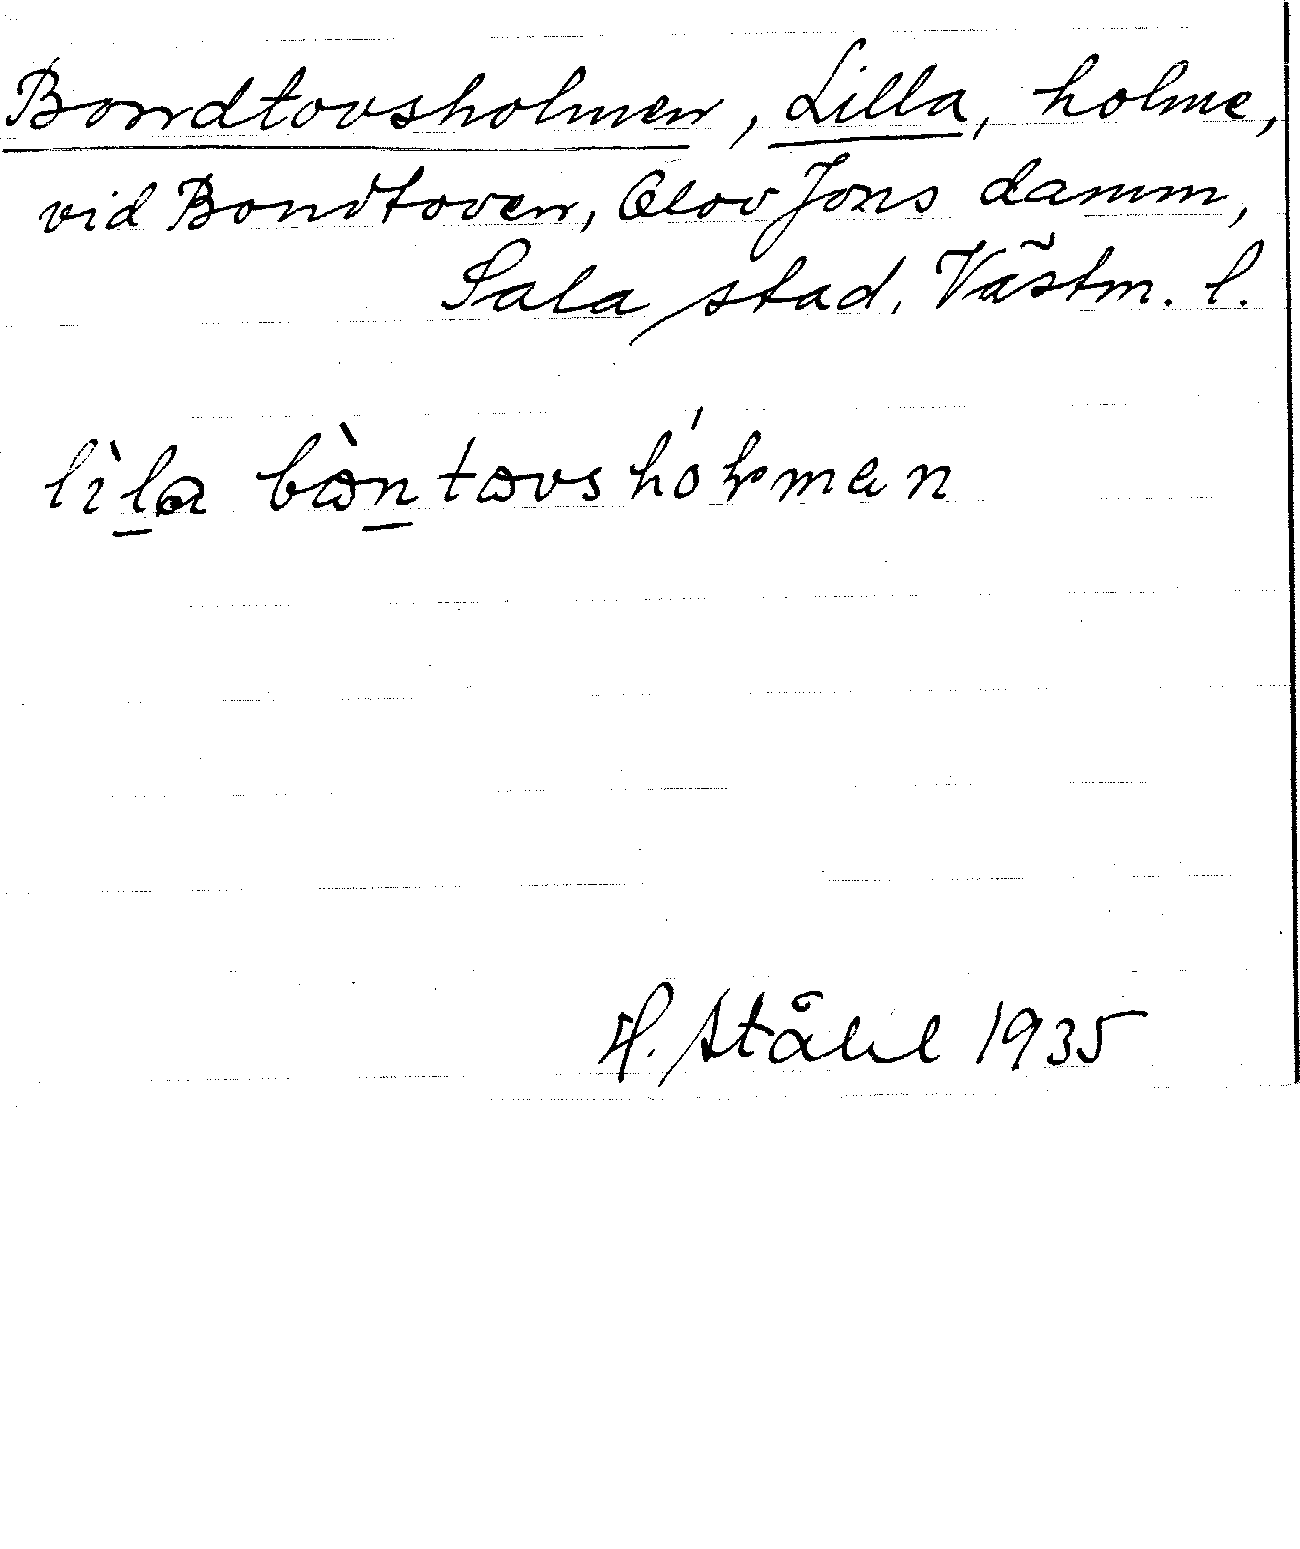 Bondtovsholmen, Lilla, holme,
vid Bondtoven, Olov Jons damm,
Sala stad, Västm. l.
lìla bòntovshóḷmen
H. Ståhl 1935